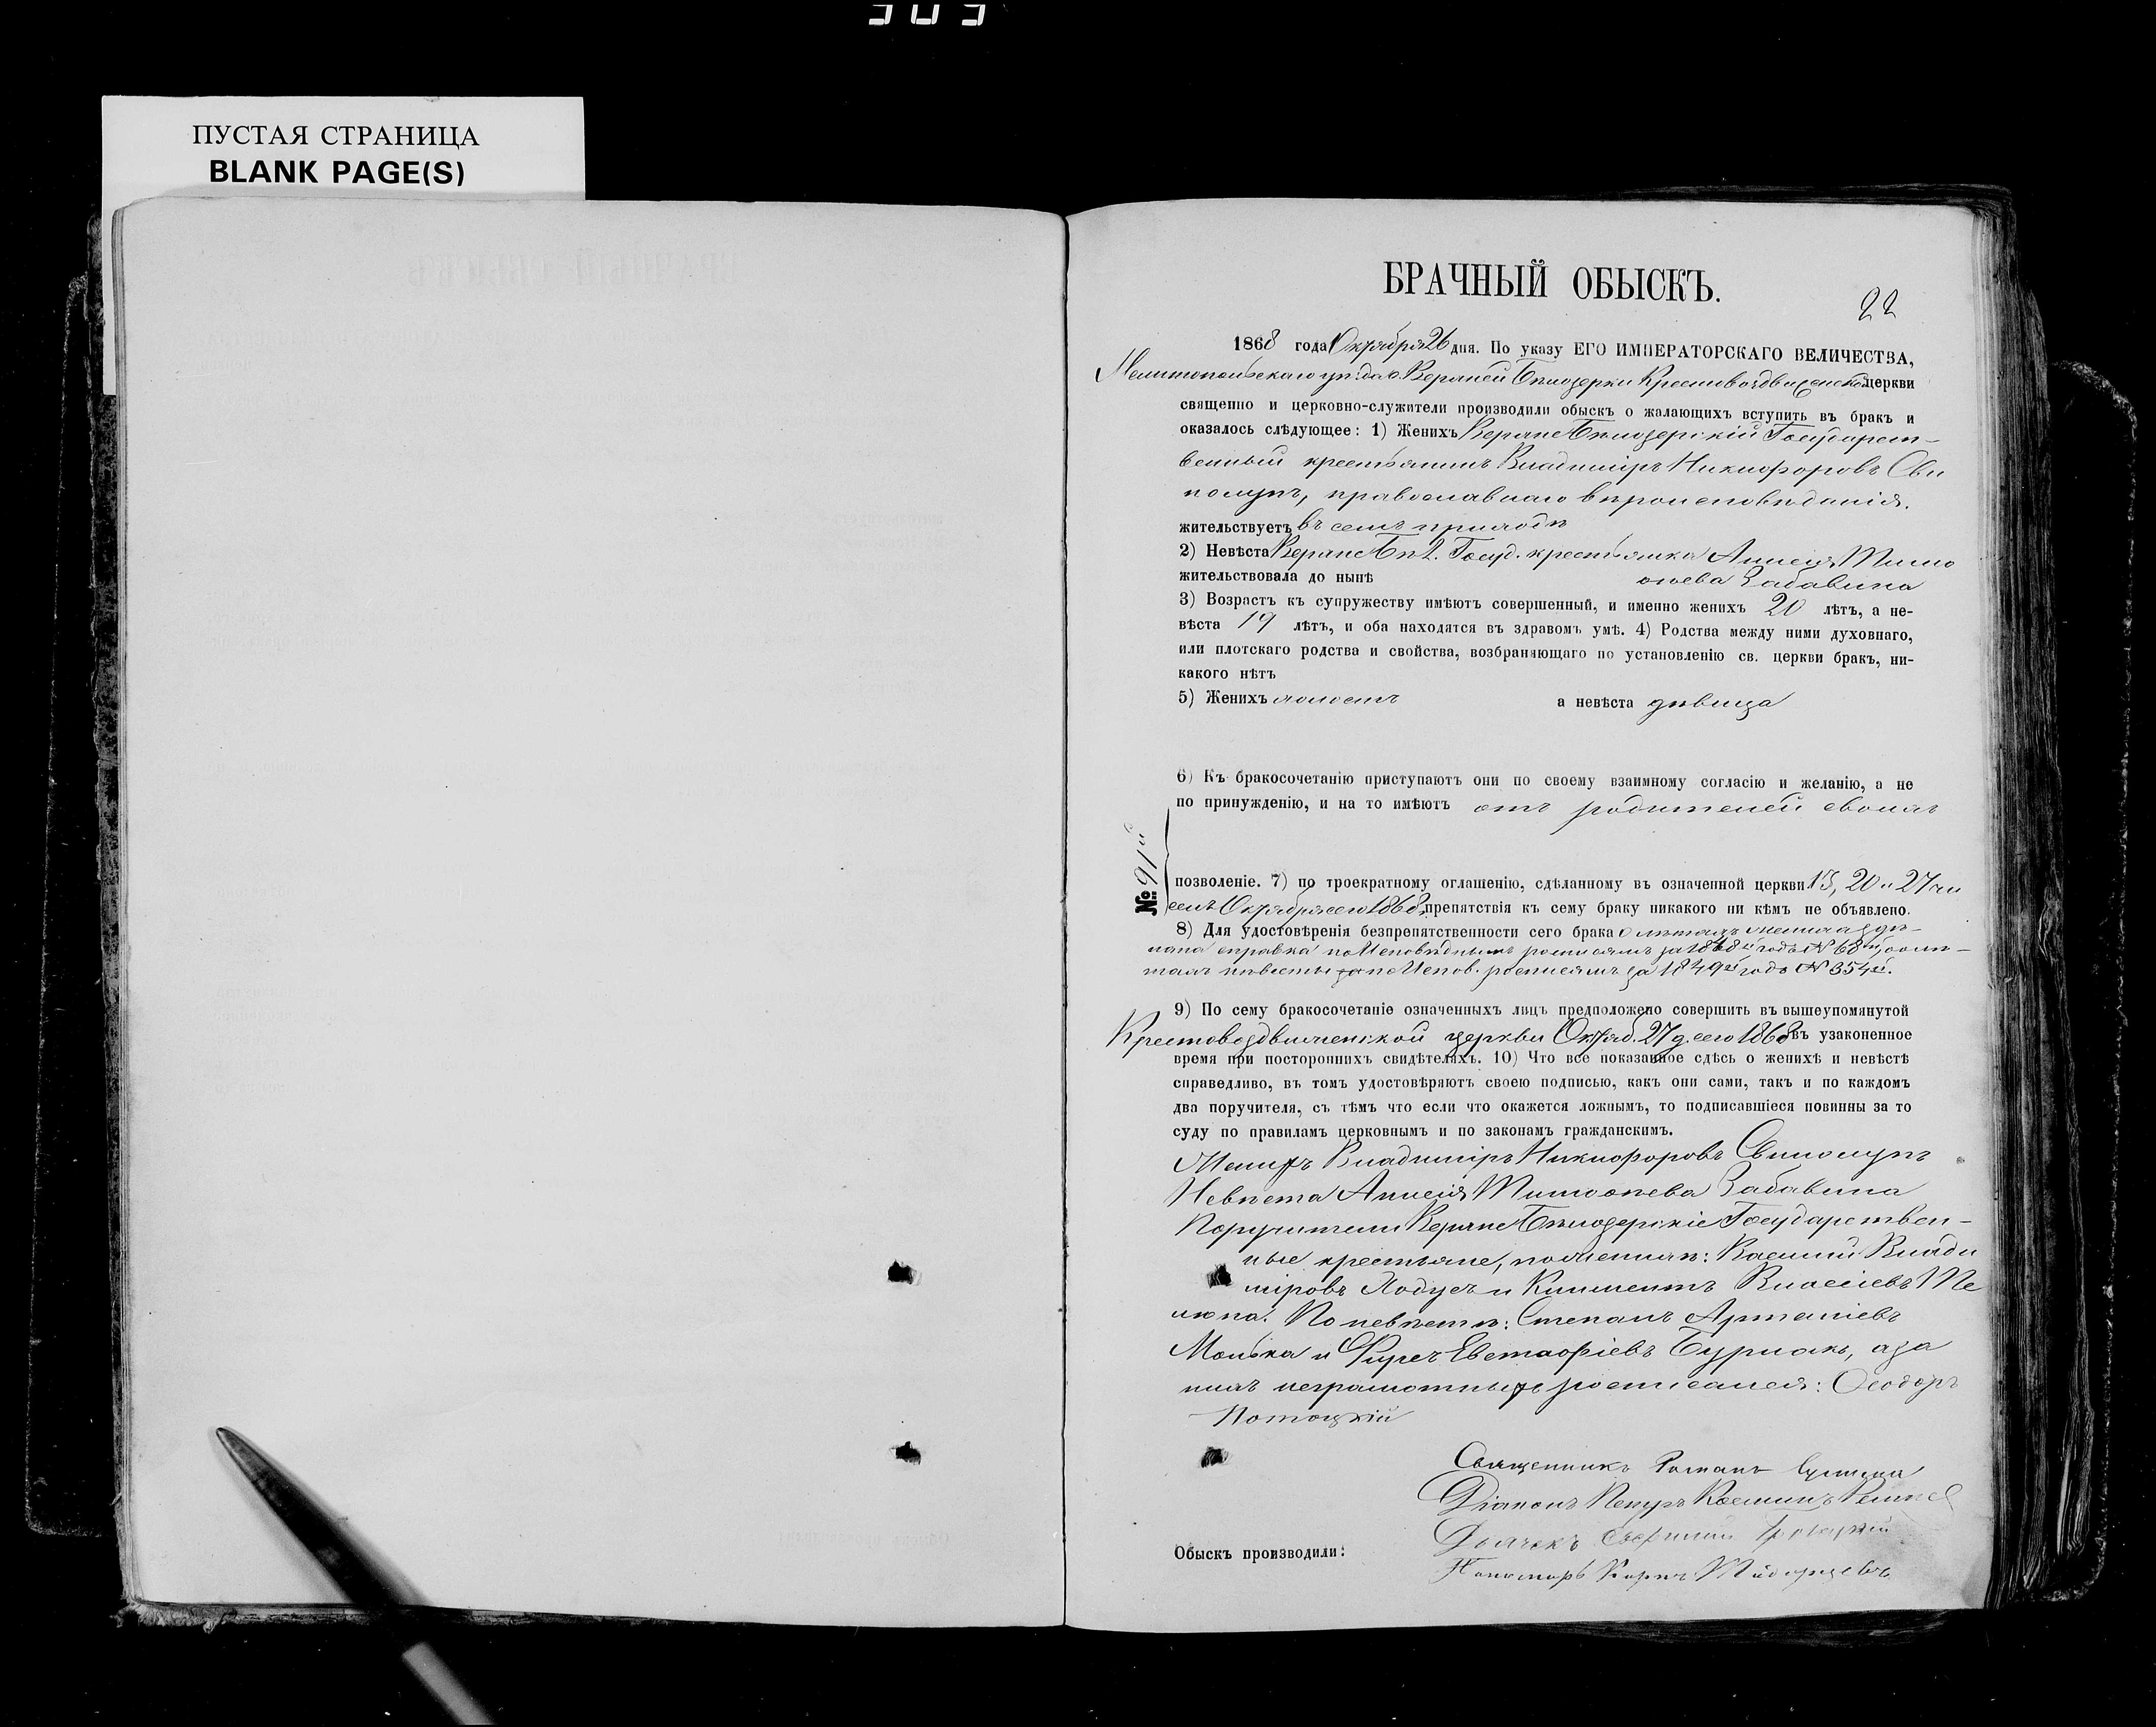 303
ПУСТАЯ СТРАНИЦА
BLANK PAGE(S)
БРАЧНЫЙ ОБЫСКЪ.
22
1868 года Октября 26 дня. По указу ЕГО ИМПЕРАТОРСКАГО ВЕЛИЧЕСТВА,
Мелитопольскаго уѣзда с. Верхней Бѣлозерки Крестовоздвиженской церкви
священно и церковно-служители производили обыскъ о жалающихъ вступить въ бракъ и
оказалось слѣдующее: 1) Женихъ Верхнебѣлозерскій Государст-
венный крестьянинъ Владиміръ Никифоровъ Сви
нолупъ, православнаго вѣроисповѣданія.
жительствуетъ въ семъ приходѣ
2) Невѣста Верхне Бѣл. Госуд. крестьянка Анисія Тимо
жительствовала до нынѣ ѳѣева Забавина
3) Возрастъ къ супружеству имѣютъ совершенный, и именно женихъ 20 лѣтъ, а не-
вѣста 19 лѣтъ, и оба находятся въ здравомъ умѣ. 4) Родства между ними духовнаго,
или плотскаго родства и свойства, возбраняющаго по установленію св. церкви бракъ, ни-
какого нѣтъ
5) Женихъ холостъ а невѣста дѣвица
6) Къ бракосочетанію приступаютъ они по своему взаимному согласію и желанію, а не
по принужденію, и на то имѣютъ отъ родителей своихъ
№ 91й
позволеніе. 7) по троекратному оглашенію, сдѣланному въ означенной церкви 13, 20 и 27 чи
селъ Октября сего 1868 г. препятствія къ сему браку никакого ни кѣмъ не объявлено.
8) Для удостовѣренія безпрепятственности сего брака о лѣтахъ жениха здѣ-
лана справка по Исповѣднымъ росписямъ за 1848й годъ № 68й, о лѣ-
тахъ невѣсты по Испов. росписямъ за 1849й годъ № 354й.
9) По сему бракосочетаніе означенныхъ лицъ предположено совершить въ вышеупомянутой
Крестовоздвиженской церкви Октяб. 27 д. сего 1868 въ узаконенное
время при постороннихъ свидѣтеляхъ. 10) Что все показанное сдѣсь о женихѣ и невѣстѣ
справедливо, въ томъ удостовѣряютъ своею подписью, какъ они сами, такъ и по каждомъ
два поручителя, съ тѣмъ что если что окажется ложнымъ, то подписавшіеся повинны за то
суду по правиламъ церковнымъ и по законамъ гражданскимъ.
Женихъ Владиміръ Никифоровъ Свинолупъ
Невѣста Анисія Тимоѳѣева Забавина
Поручители Верхне Бѣлозерскіе Государствен-
ные крестьяне, по женихѣ: Касьянъ Влади
міровъ и Климентъ Власіевъ
По невѣстѣ: Степанъ
и Фирсъ Евстафіевъ Бурлакъ, а за
нихъ неграмотныхъ росписался: Ѳеодоръ
Потоцкій
Священникъ Романъ
Діаконъ Петръ
Дьячекъ
Обыскъ производили:
Пономарь